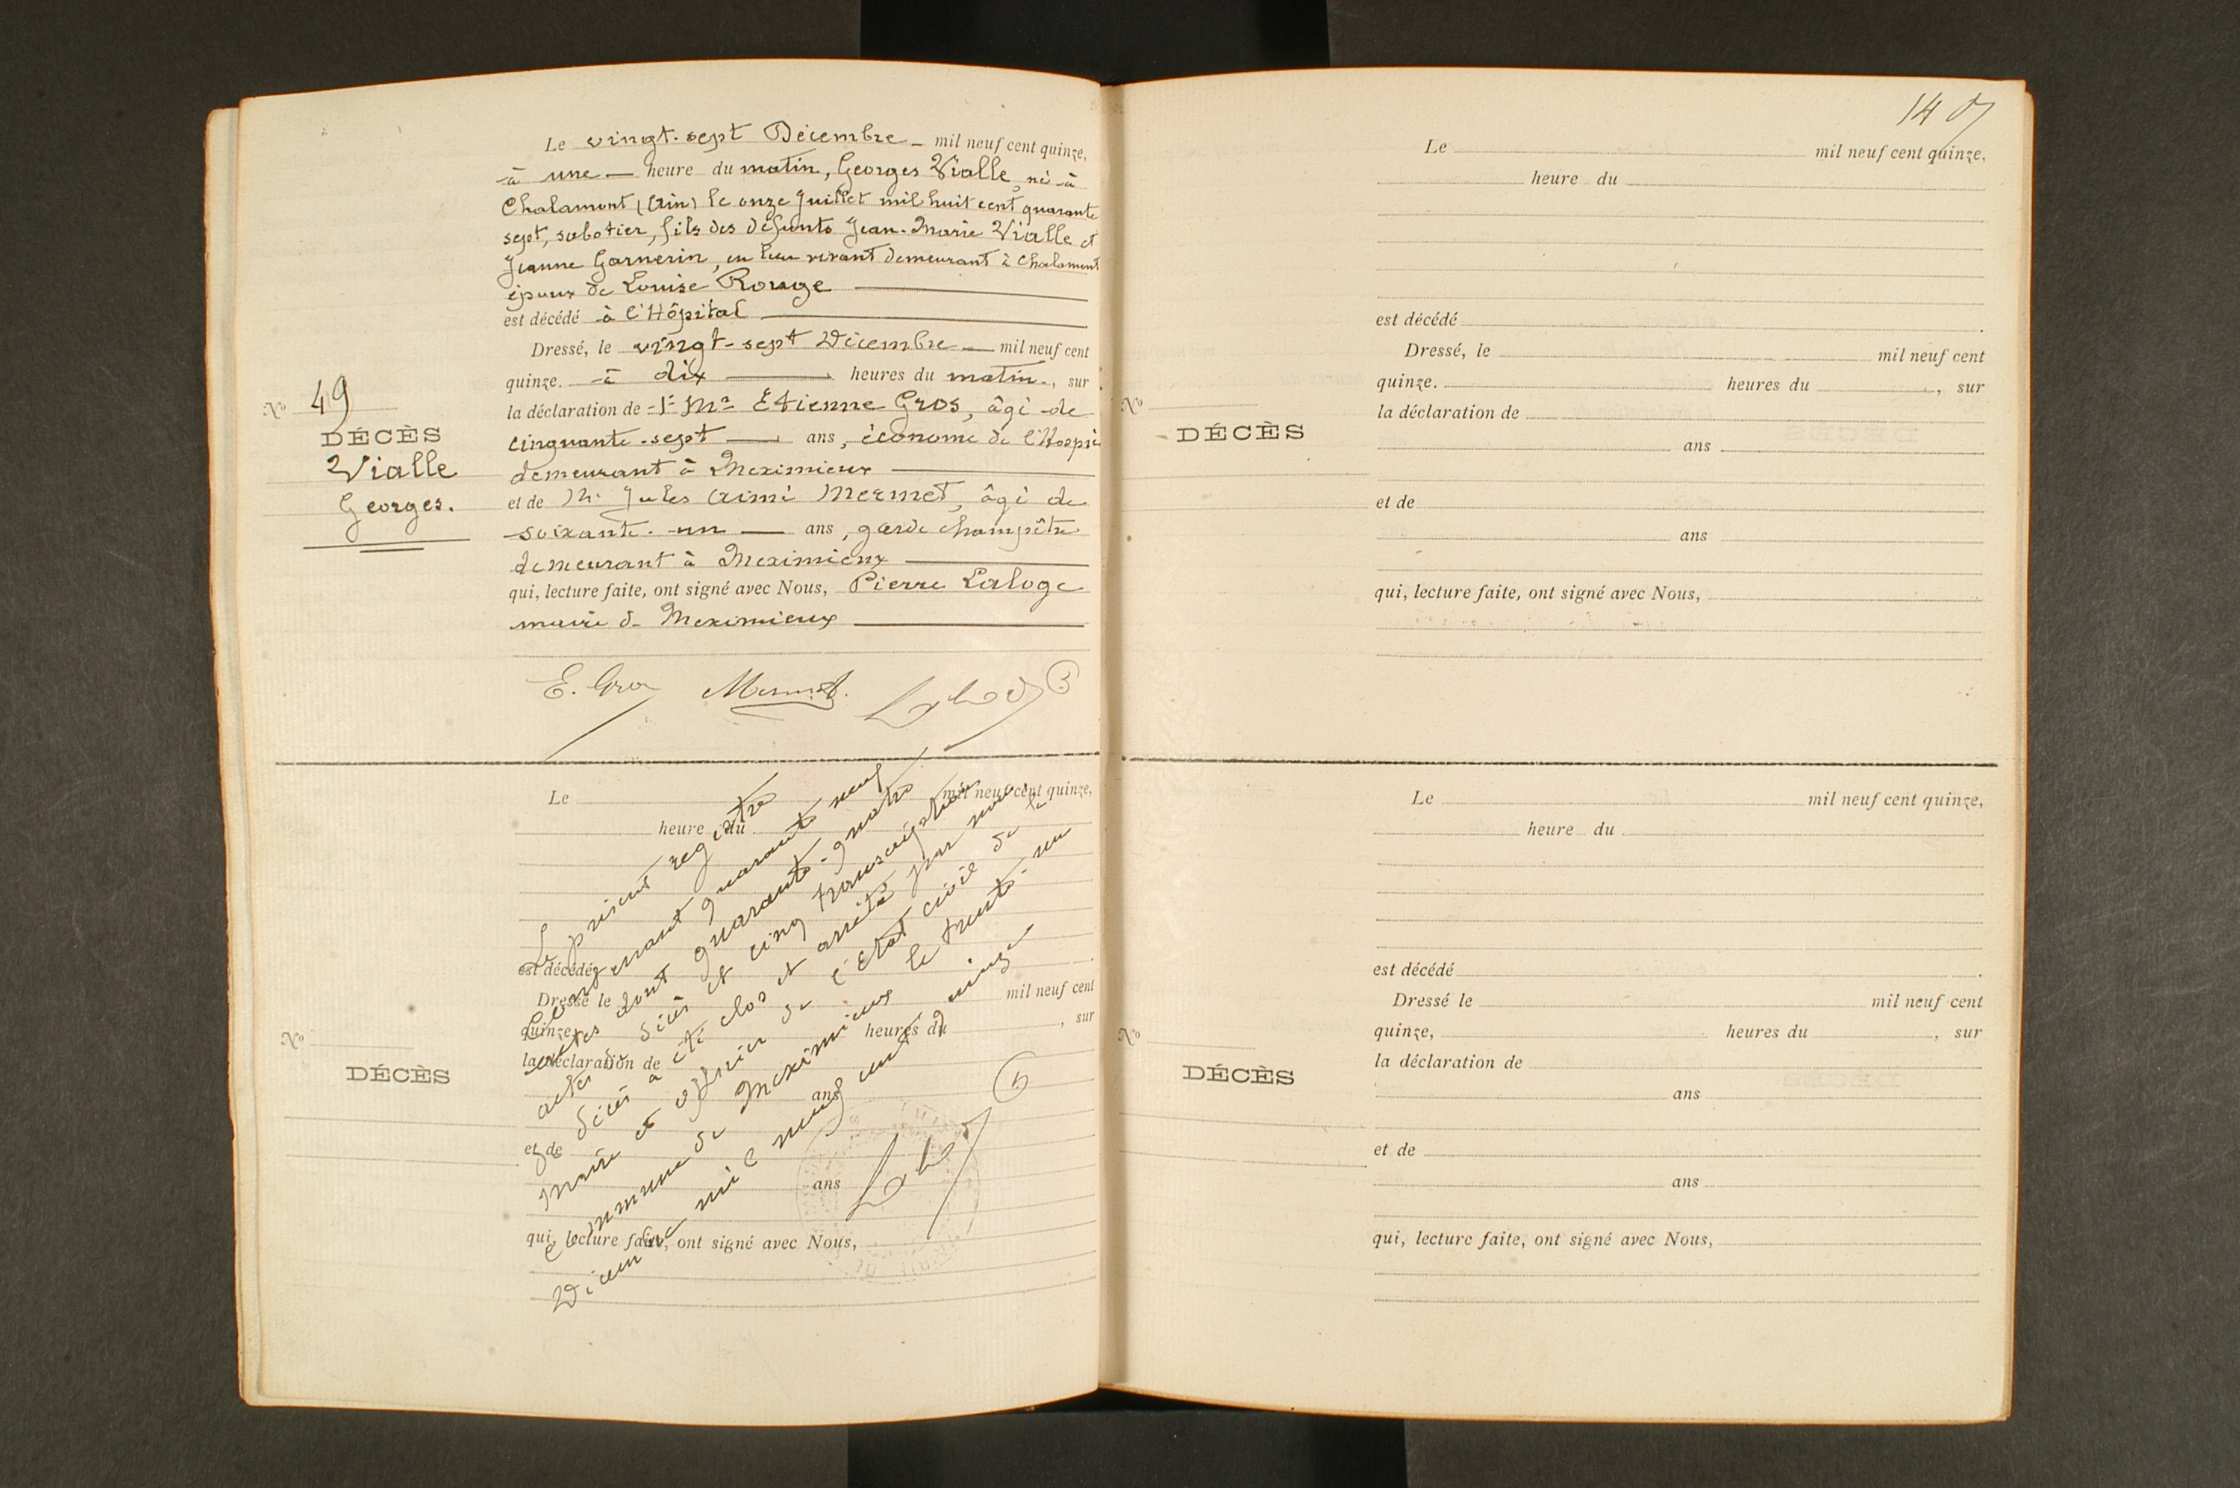 Le vingt-sept Décembre mil neuf cent quinze,
à une heure du matin, Georges Vialle, né à
Chalamont (Ain) le onze Juillet mil huit cent quarante
sept, sabotier, fils des défunts Jean-Marie Vialle et
Jeanne Garnerin, en leur vivant demeurant à Chalamont
époux de Louise Rouge
est décédé à l'Hôpital
Dressé, le vingt-sept Décembre mil neuf cent
quinze. à dix heures du matin, sur
No 49
DÉCÈS
Vialle
Georges.
la déclaration de Etienne Gros, âgé de
cinquante-sept ans, économe de l'Hospi
demeurant à Meximieux
et de M. Jules Aimé Mermet, âgé de
soixante-un ans, garde champêtre
demeurant à Meximieux
qui, lecture faite, ont signé avec Nous, Pierre Laloge
maire de Meximieux
E. Gros Mermet.
Le mil neuf cent quinze,
heure du
est décédé
Dressé le mil neuf cent
quinze heures du , sur
No
DÉCÈS
la déclaration de
ans
et de
ans
qui, lecture faite, ont signé avec Nous,
Le présent registre
comprenant quarante neuf
actes dont quarante-quatre
actes de décès et cinq transcriptions de
décès a été clos et arrêté par nous
maire et officier de l'Etat civil de la
commune de Meximieux le trente-un
Décembre mil neuf cent quinze
14
Le mil neuf cent quinze,
heure du
est décédé
Dressé, le mil neuf cent
quinze. heures du , sur
No
DÉCÈS
la déclaration de
ans
et de
ans
qui, lecture faite, ont signé avec Nous,
Le mil neuf cent quinze,
heure du
est décédé
Dressé le mil neuf cent
quinze, heures du , sur
No
DÉCÈS
la déclaration de
ans
et de
ans
qui, lecture faite, ont signé avec Nous,